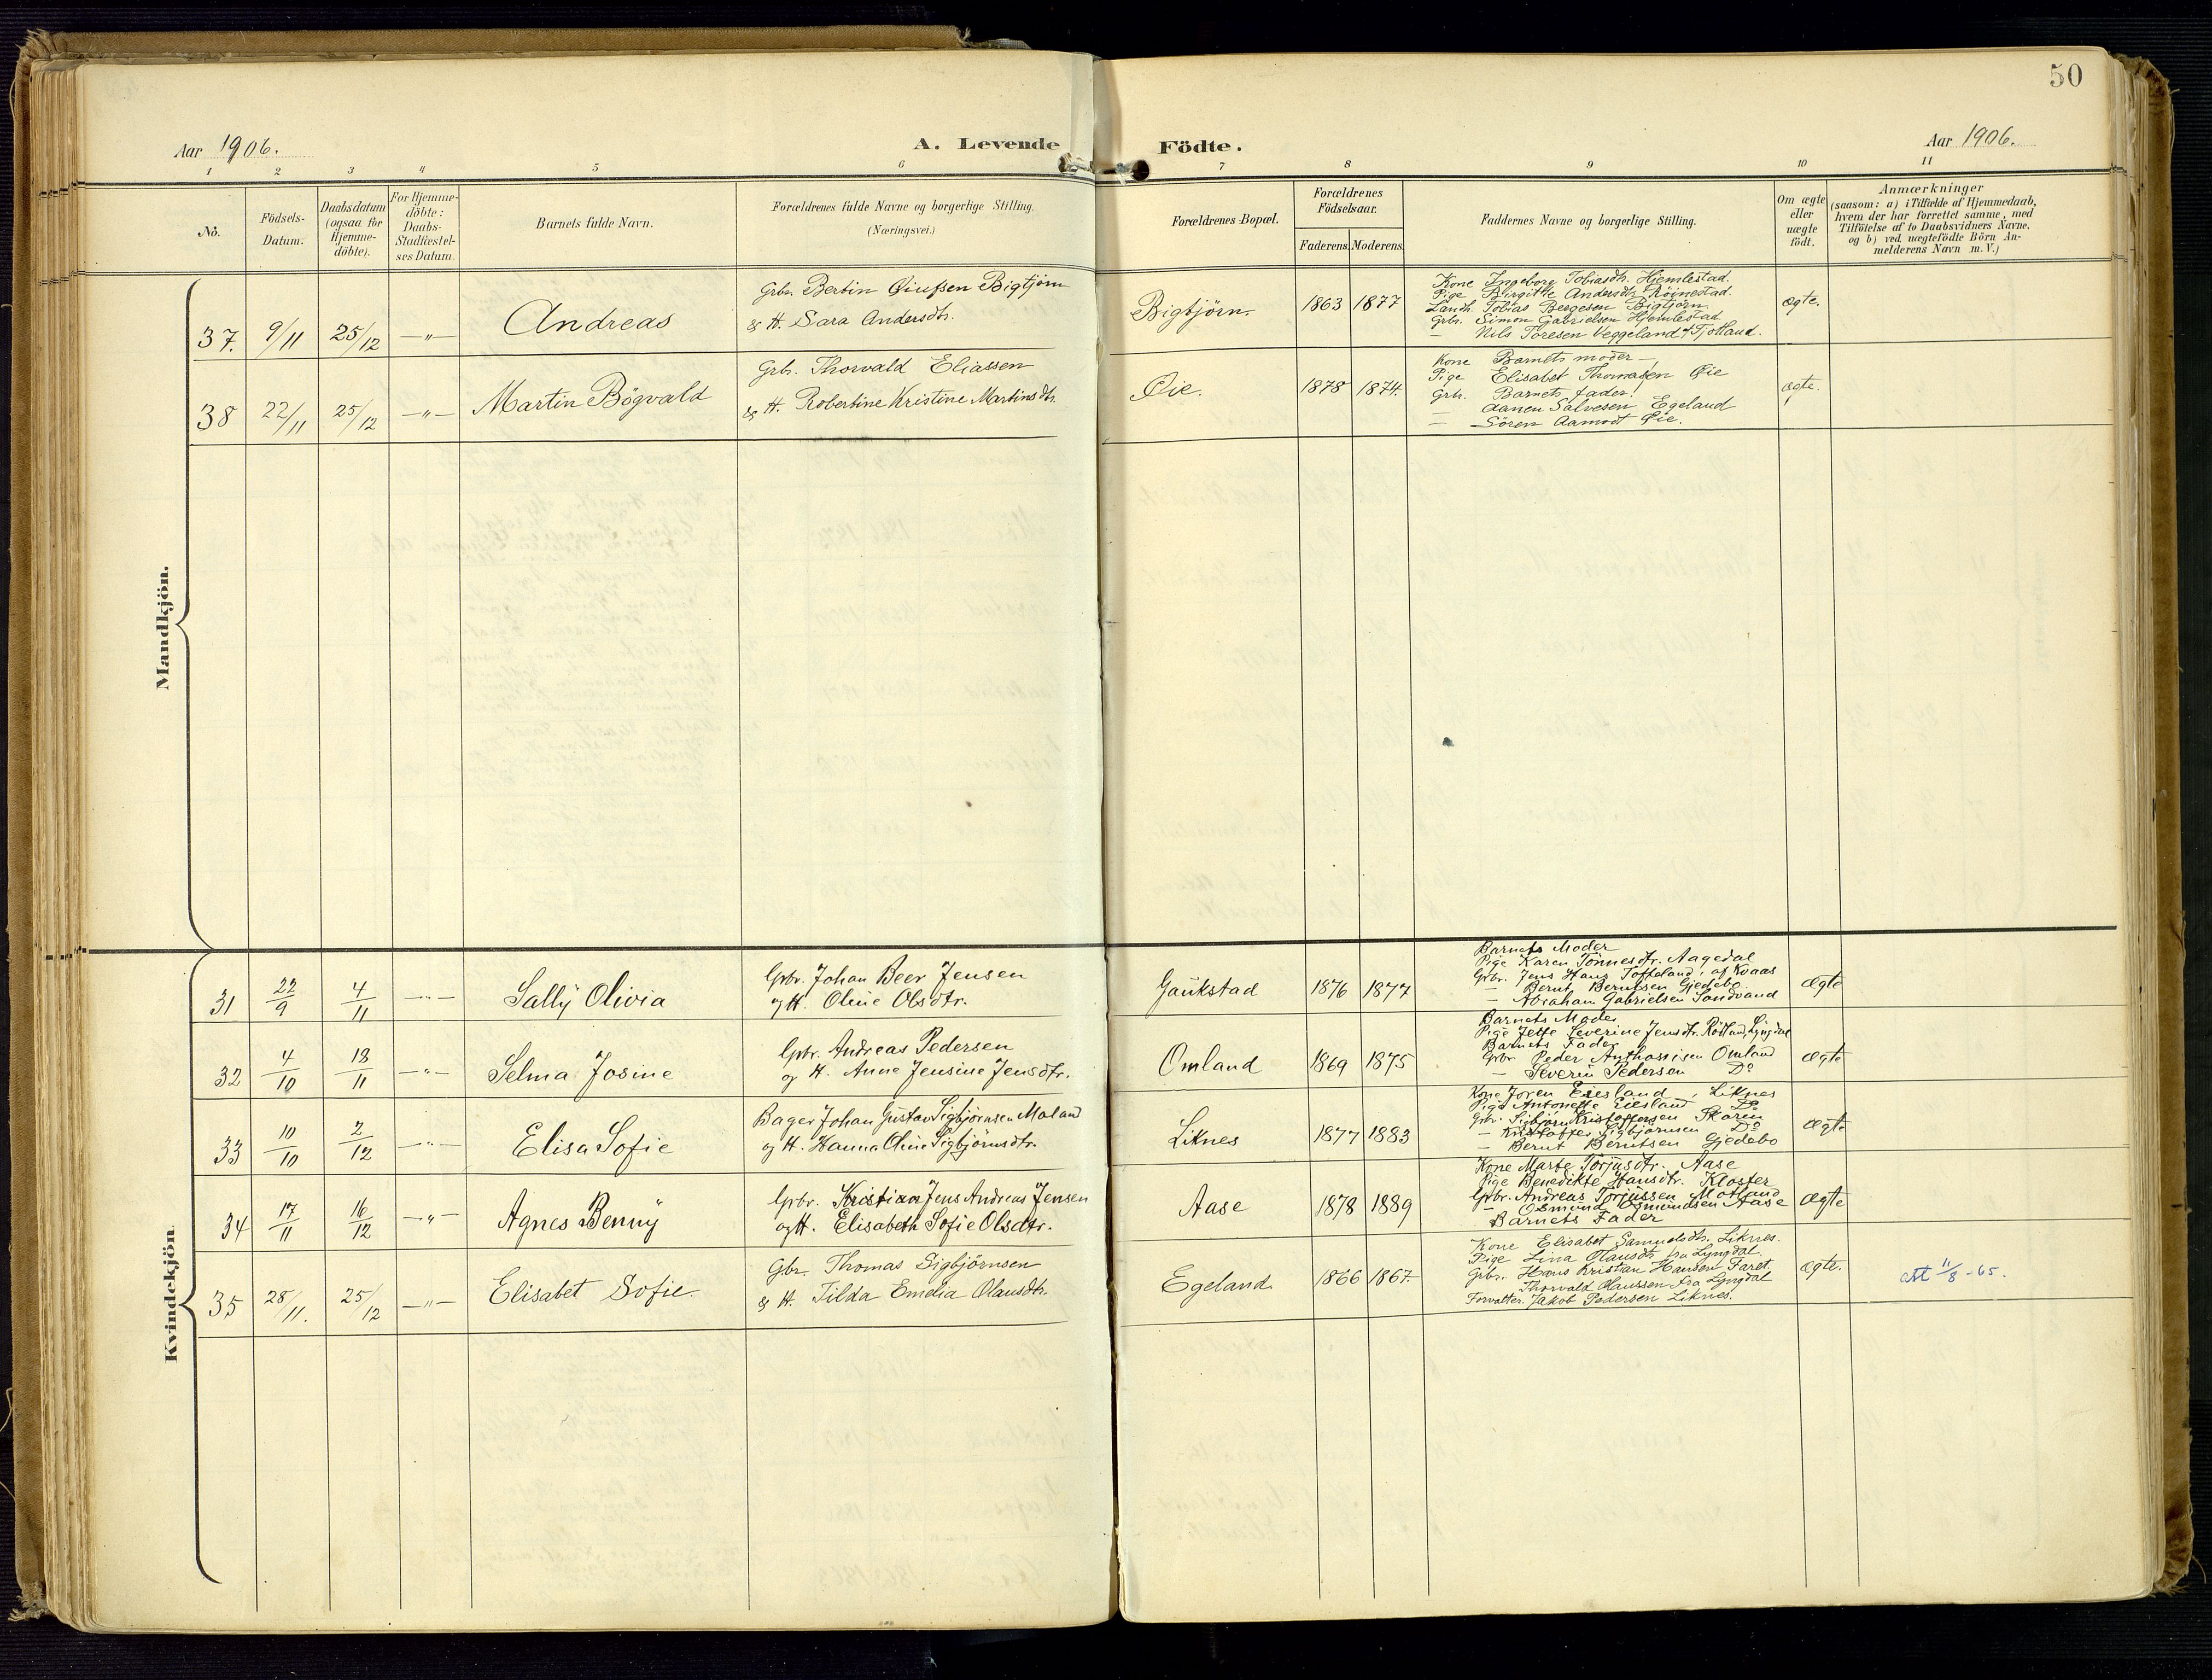 50
Aar 1906.
A. Levende Födte.
Aar 1906.
1 2 3 4 5 6 7 8 9 10 11
No.
Födsels-Datum.
Daabsdatum (ogsaa for Hjemme-döbte).
For Hjemme-döbte: Daabs-Stadfæstel-ses Datum.
Barnets fulde Navn.
Forældrenes fulde Navne og borgerlige Stilling.
(Næringsvei.)
Forældrenes Bopæl.
Forældrenes Födselsaar.
Faderens. Moderens.
Faddernes Navne og borgerlige Stilling.
Om ægte eller uægte födt.
Anmærkninger
(saasom: a) i Tilfælde af Hjemmedaab,
hvem der har forrettet samme, med
Tilföielse af to Daabsvidners Navne.
og b) ved uægtefödte Börn An-
melderens Navn m. V.)
Mandkjön.
37. 9/11 25/12 —"— Andreas
Grbr. Bertin Bigtjörn
& H. Sara Andersdtr.
Bigtjörn. 1863 1877
Kone Ingeborg Tobiasdtr. Hjemlestad.
Pige Birgitte Andersdtr. Röinestad.
Landh. Tobias Bergesen Bigtjörn
Grbr. Simon Gabrielsen Hjemlestad
— Nils Toresen Veggeland, Fjotland.
ægte.
38 22/11 25/12 —"— Martin Bögvald
Grbr. Thorvald Eliassen
& H. Robertine Kristine Martinsdtr.
Øie. 1878 1874.
Kone Barnets moder —
Pige Elisabet Thomasen Øie
Grbr. Barnets fader.
— Aanen Salvesen Egeland
— Sören Aamodt Øie.
ægte.
Kvindekjön
31 22/9 4/11 —"— Sally Olivia
Grbr. Johan Beer Jensen
og H. Oline Olsdtr.
Gaukstad 1876 1877
Barnets Moder
Pige Karen Tönnesdtr. Aagedal
Grbr. Jens Hans Tofteland, af Kvaas
— Bernt Berntsen Gjedebo
— Abraham Gabrielsen Sandvand
Ægte
32 4/10 18/11 —"— Selma Josine
Grbr. Andreas Pedersen
og H. Anne Jensine Jensdtr.
Omland 1869 1875
Barnets Moder
Pige Jette Severine Jensdtr. Rötland, Lyngdal
Barnets Fader
Grbr Peder Omland
— Severin Pedersen Do
Ægte
33 10/10 2/12 —"— Elisa Sofie
Bager Johan Gustav Sigbjörnsen Moland
og H. Hanna Oline Sigbjörnsdtr.
Liknes 1877 1883
Kone Joren Eiesland, Liknes
Pige Antonette Eiesland Do
Grbr. Sigbjörn Kristoffersen Skaren
— Kristoffer Sigbjörnsen Do
— Bernt Berntsen Gjedebo
Ægte
34 17/11 16/12 —"— Agnes Benny
Grbr. Kristian Jens Andreas Jensen
og H. Elisabeth Sofie Olsdtr.
Aase 1878 1889
Kone Marte Torjusdtr. Aase
Pige Benedikte Hansdtr. Kloster
Grbr. Andreas Torjussen Moland
— Osmund Osmundsen Aase
Barnets Fader
Ægte
35 28/11. 25/12 —"— Elisabet Sofie
Gbr. Thomas Sigbjörnsen
& H. Tilda Emelia Olausdtr.
Egeland 1866 1867.
Kone Elisabet Samuelsdtr. Liknes.
Pige Lina Olausdtr. fra Lyngdal.
Grbr. Hans Kristian Hansen Faret.
Thorvald Olaussen fra Lyngdal
Forvalter. Jakob Pedersen Liknes.
ægte.
att 11/8 - 65.